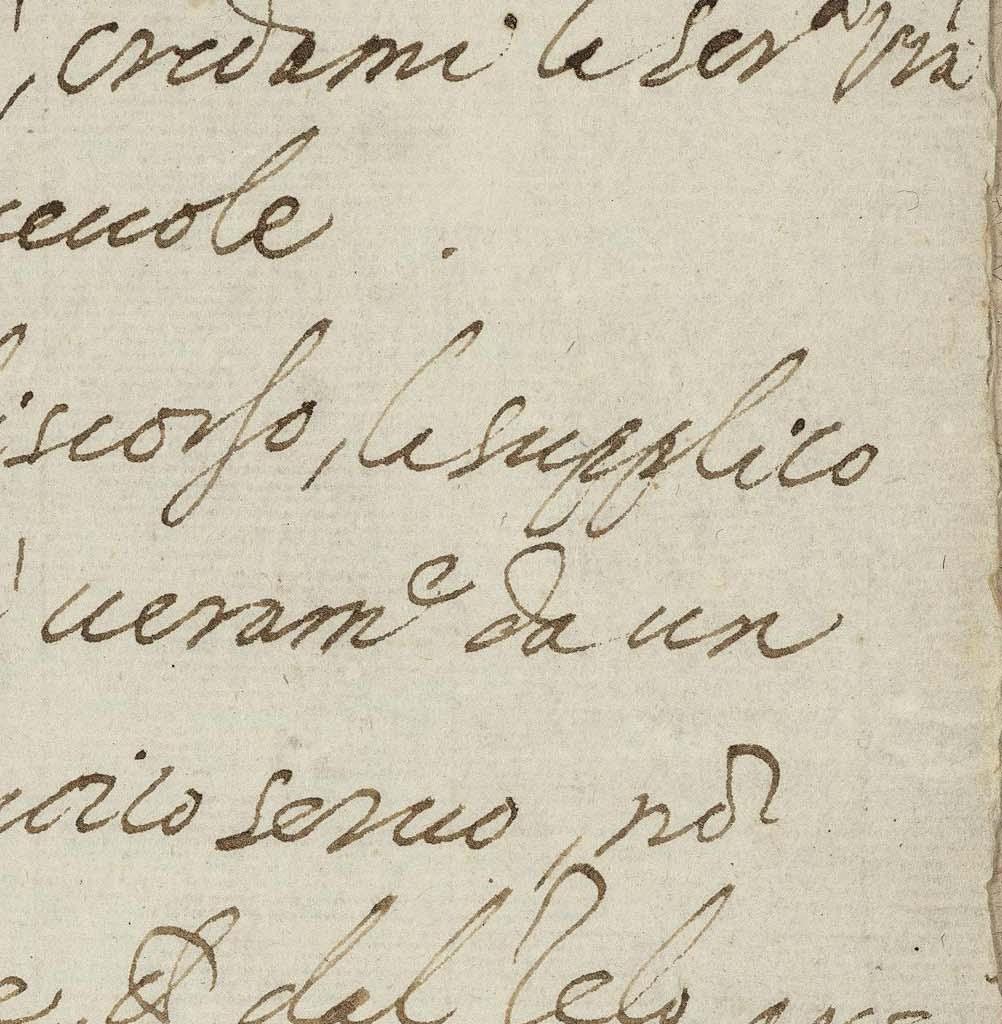 , credami la Ser.ª Vra
ueuole .
iscorso, la supplico
ueram.e da un
uoico seruo, nō
e, & dal Zelo